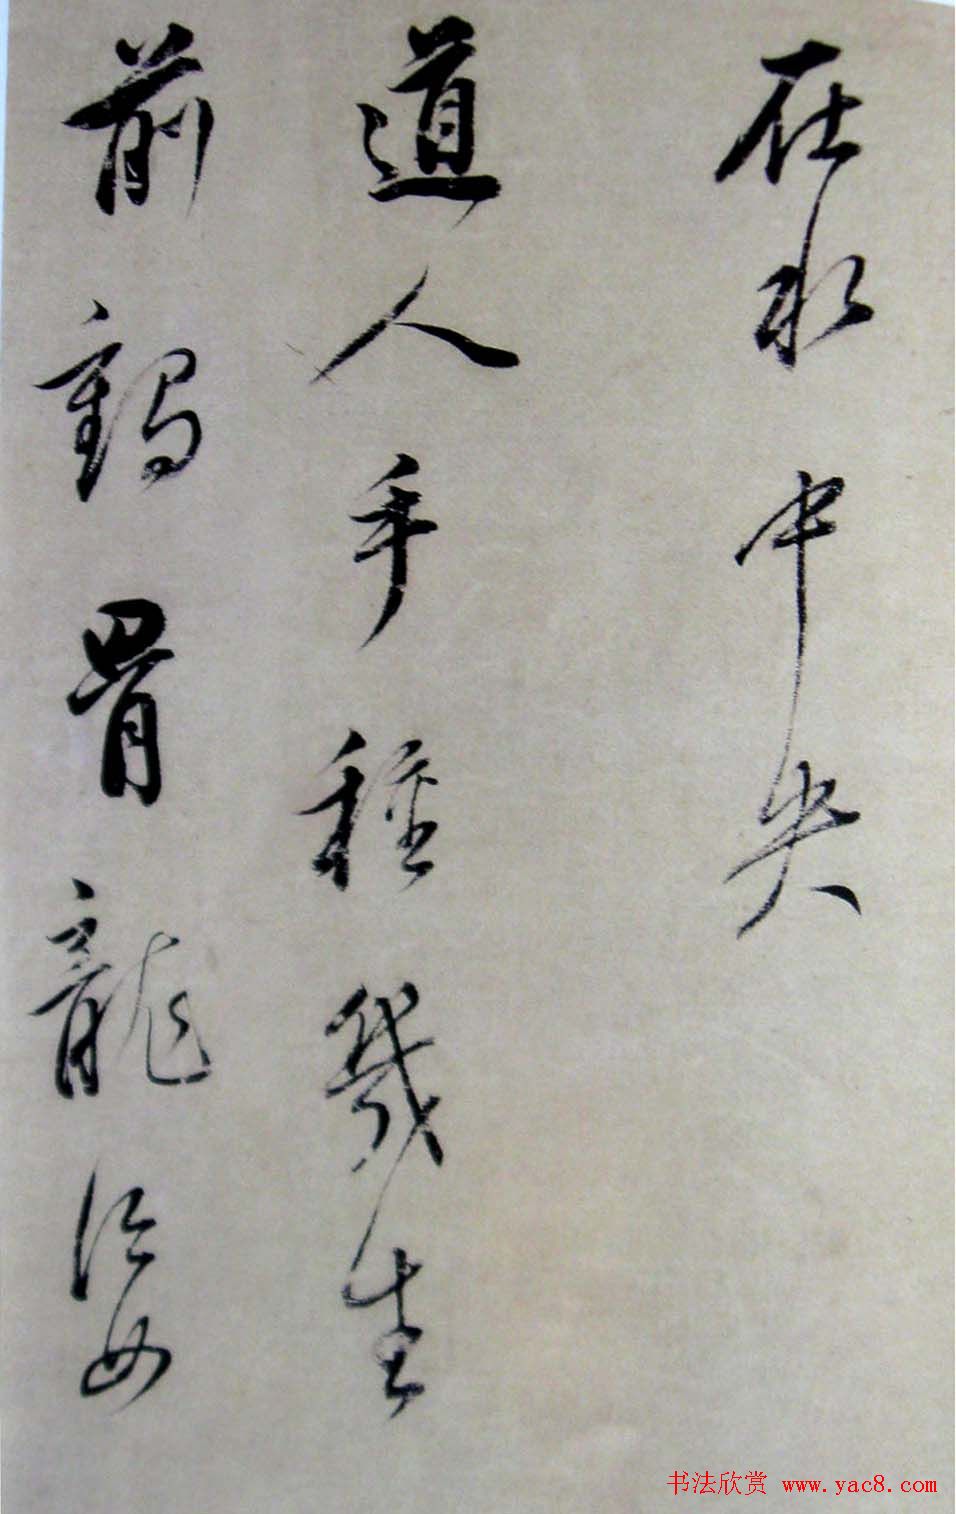 在水中央
道人手種幾生
前鶴骨龍姿
书法欣赏 www.yac8.com